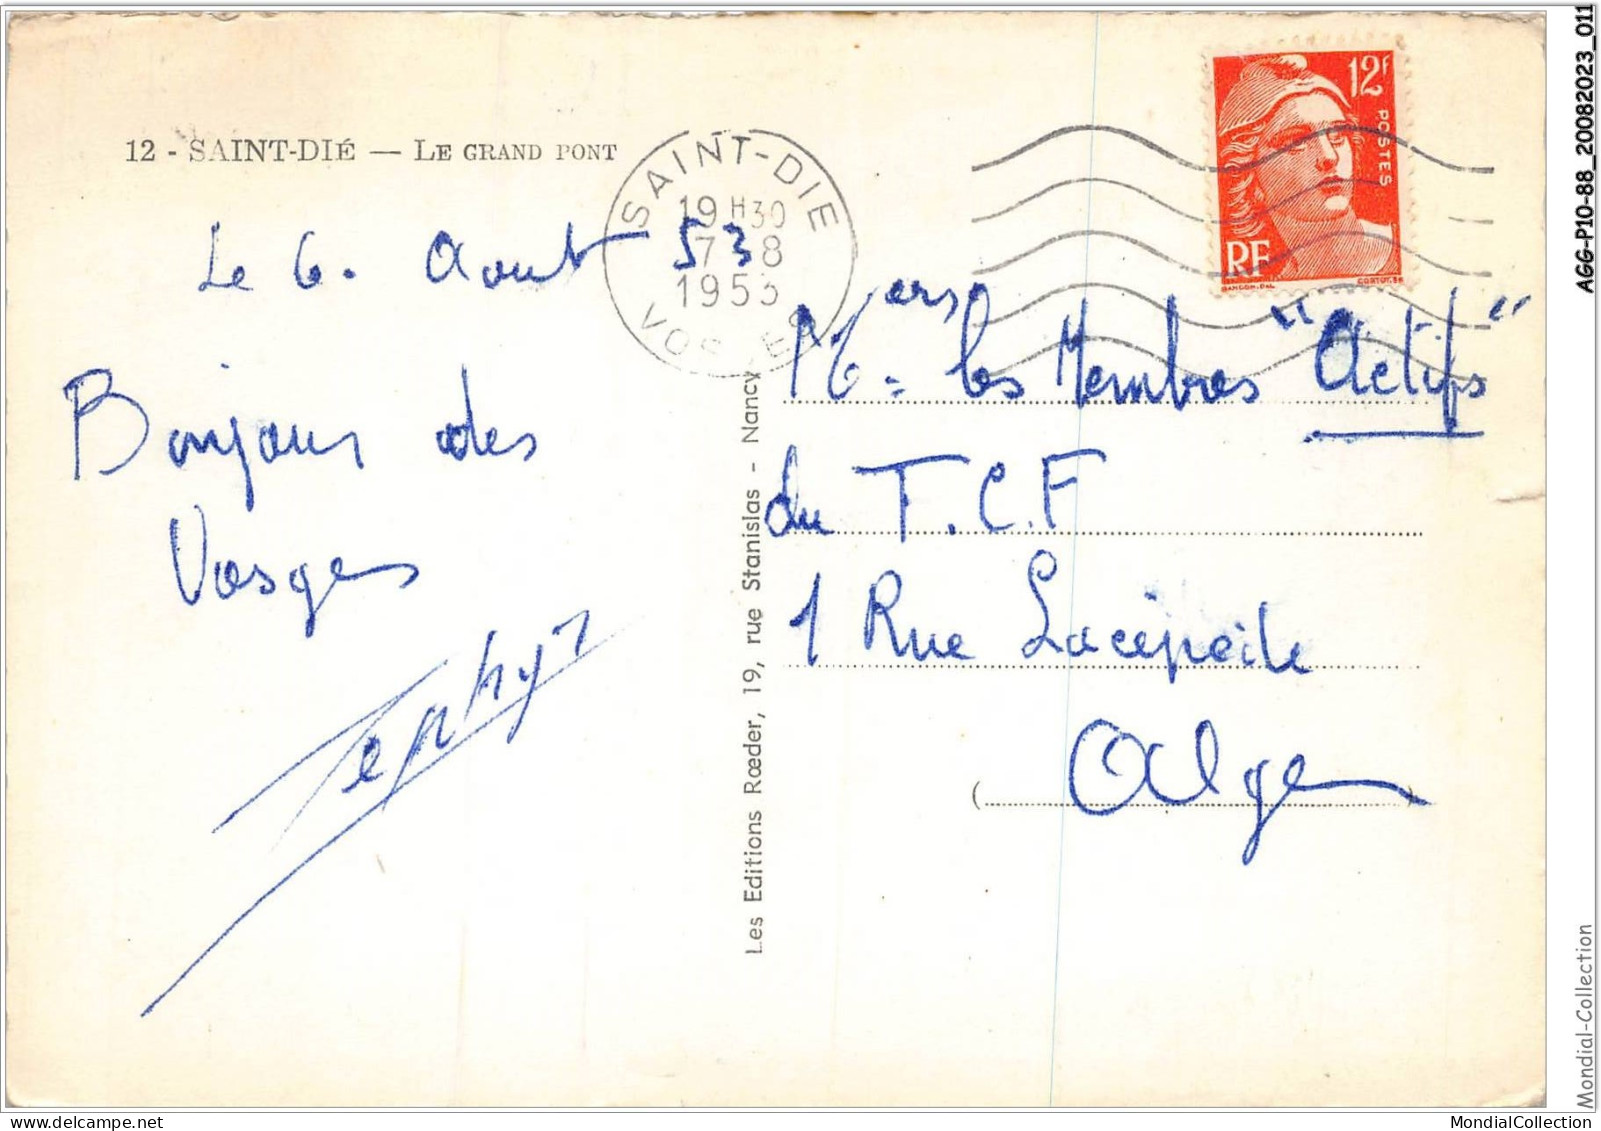 12 - SAINT-DIÉ — LE GRAND PONT
SAINT-DIE
19 H30
7-8
1953
VOSGES
12F
POSTES
RF
GANDON.DEL
CORTOT.SC
Le 6. Aout 53
Bonjour des
Vosges
Zephyr
Les Editions Rœder, 19, rue Stanislas - Nancy
Mers les Membres "Actifs"
du T.C.F
1 Rue Lacépède
Alger
AGG-P10-88_20082023_011
Mondial-Collection
MondialCollection